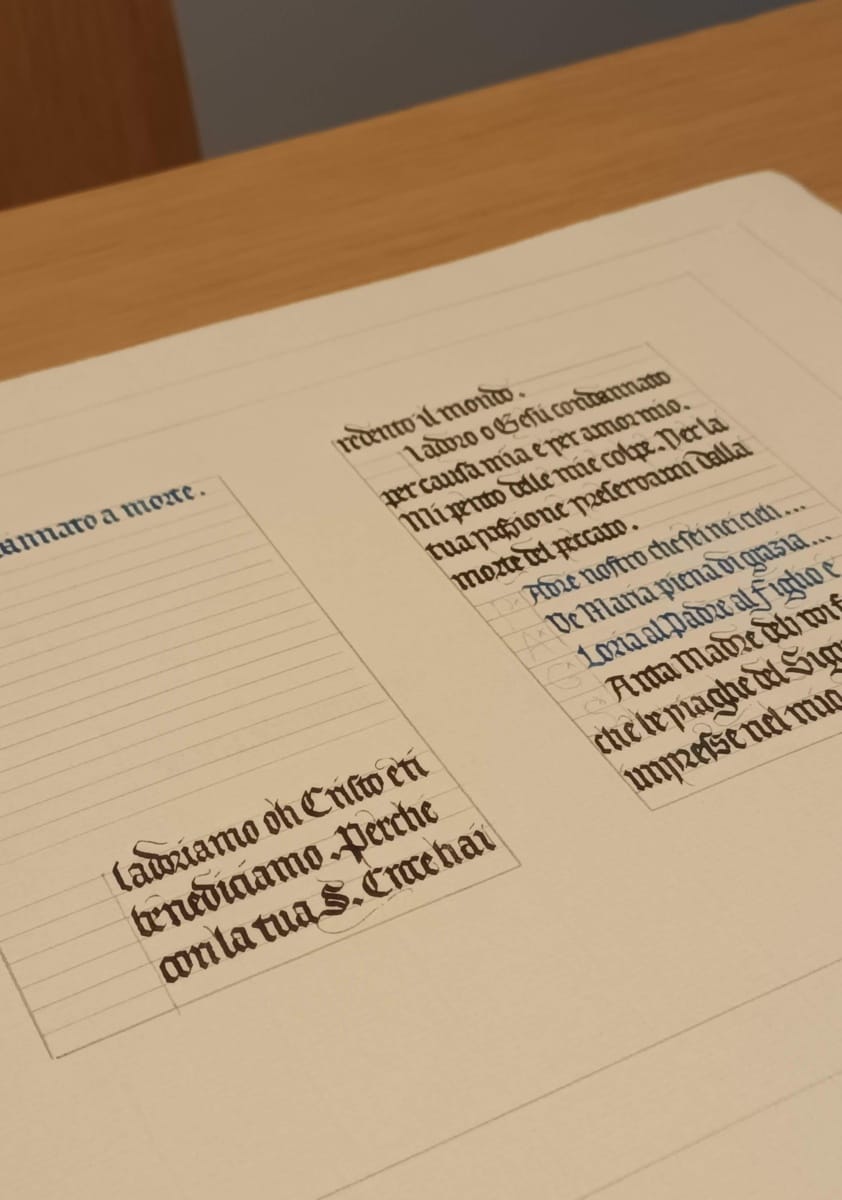 annato a morte.
i adoriamo oh Cristo e ti
benediciamo. Perche
con la tua S. Croce hai
redento il mondo.
i adoro o Gesù condannato
per causa mia e per amor mio.
Mi pento delle mie colpe. Per la
tua passione preservami dalla
morte del peccato.
Adre nostro che sei nei cieli...
Ve Maria piena di grazia...
Loria al Padre al Figlio e
Anta Madre deh voi f
che le piaghe del Sig
impresse nel mio